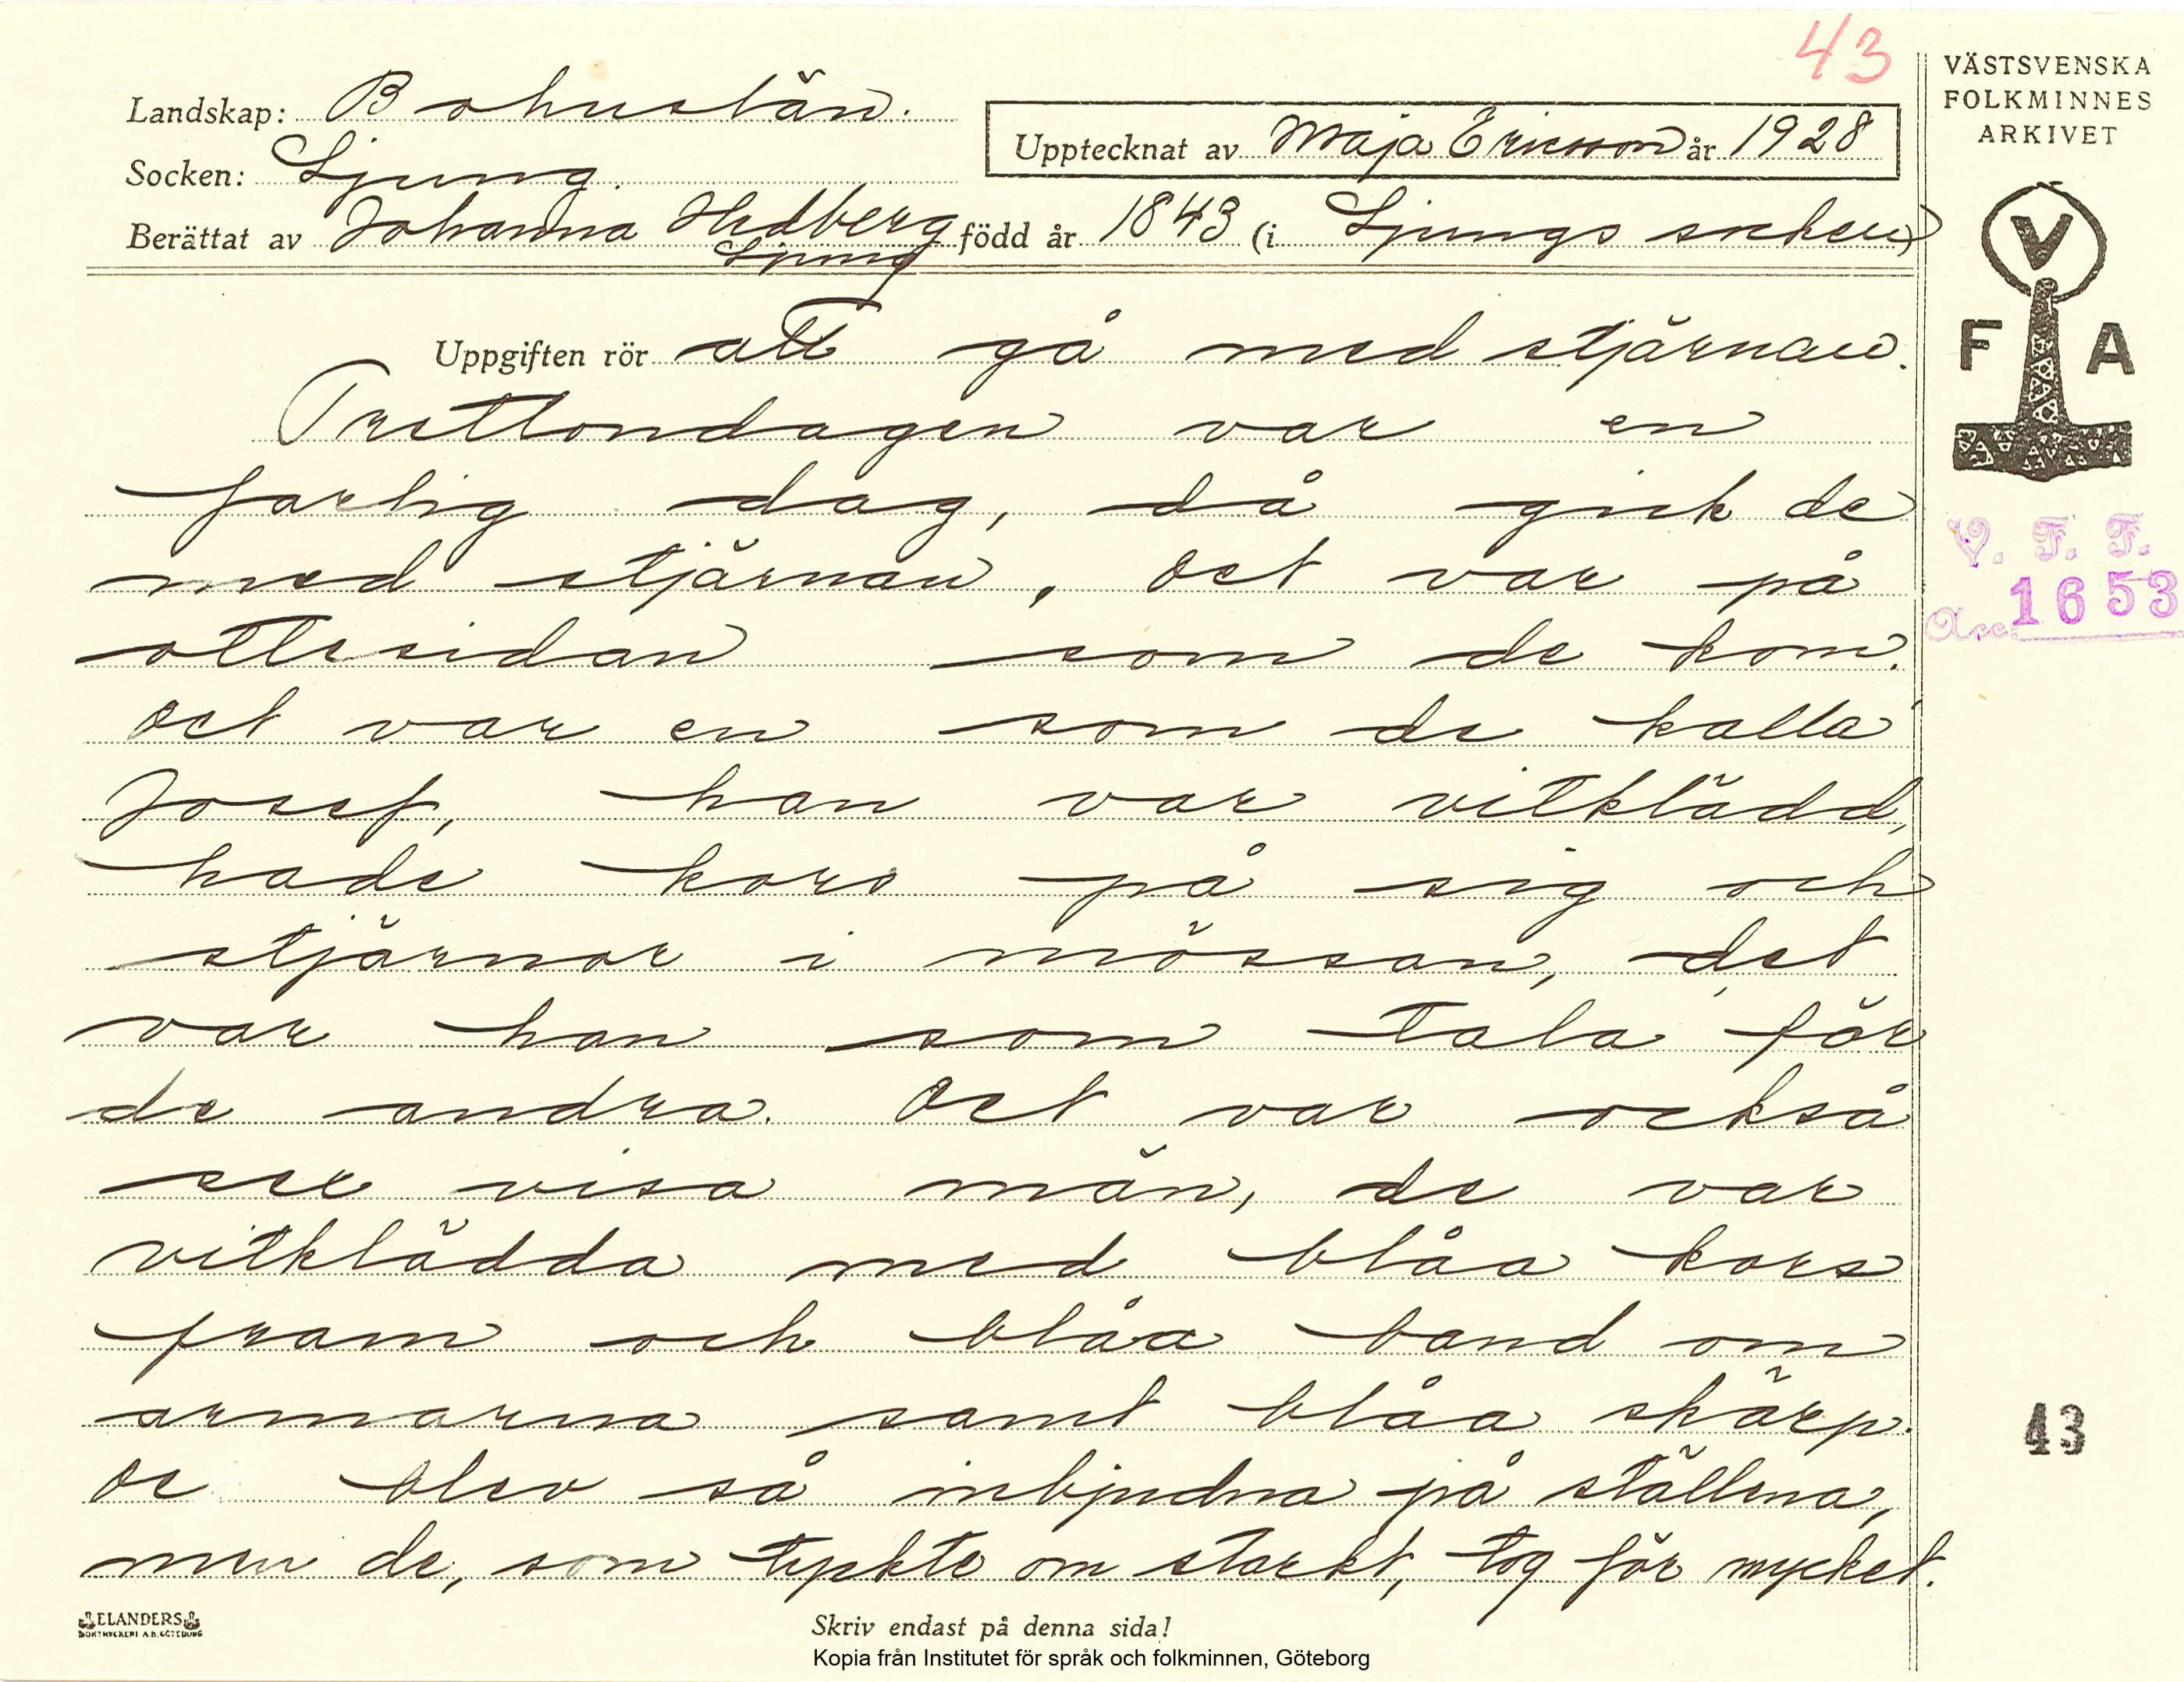 43
Landskap: Bohuslän.
Socken: Ljung.
Berättat av Johanna Hedberg född år 1843 (i Ljungs socken)
Ljung
Upptecknat av Maja Ericsson år 1928
VÄSTSVENSKA
FOLKMINNES
ARKIVET
V
F A
V. F. F.
Acc. 1653
Uppgiften rör att gå med stjärnan.
Trettondagen var en
farlig dag, då gick de
med stjärnan, det var på
ottesidan som de kom.
Det var en som de kalla
Josef, han var vitklädd,
hade kors på sig och
stjärnor i mössan, det
var han som tala för
de andra. Det var också
sex visa män, de var
vitklädda med blåa kors
fram och blåa band om
armarna samt blåa skärp.
De blev så inbjudna på ställena,
men de, som tyckte om starkt, tog för mycket.
43
ELANDERS
BOKTRYCKERI A.B. GÖTEBORG
Skriv endast på denna sida!
Kopia från Institutet för språk och folkminnen, Göteborg